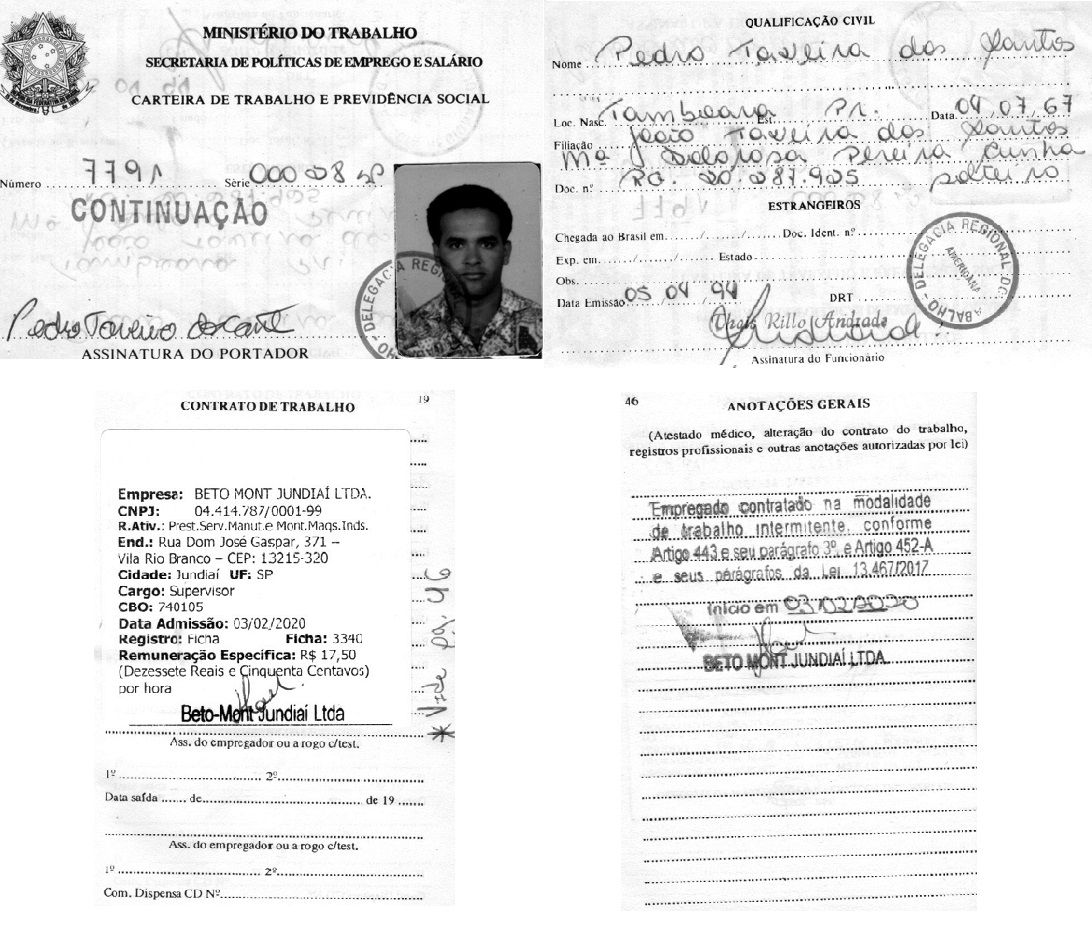 MINISTÉRIO DO TRABALHO
SECRETARIA DE POLÍTICAS DE EMPREGO E SALÁRIO
CARTEIRA DE TRABALHO E PREVIDÊNCIA SOCIAL
Número 7791 Série 00008 SP
CONTINUAÇÃO
DELEGACIA REGI
ASSINATURA DO PORTADOR
QUALIFICAÇÃO CIVIL
Nome Pedro Taveira dos Santos
Loc. Nasc. Tamboara Est. Pr. Data 04 07 67
Filiação João Taveira dos Santos
Mª Dolorosa Pereira Cunha
Doc. nº RG. 20.087.905 solteiro
ESTRANGEIROS
Chegada ao Brasil em ...../...../..... Doc. Ident. nº
Exp. em ...../...../..... Estado
Obs.
Data Emissão 05 04 94 DRT
DELEGACIA REGIONAL DO TRABALHO
AMERICANA
Thais Rillo Andrade
Assinatura do Funcionário
CONTRATO DE TRABALHO 19
Empresa: BETO MONT JUNDIAÍ LTDA.
CNPJ: 04.414.787/0001-99
R.Ativ.: Prest.Serv.Manut.e Mont.Maqs.Inds.
End.: Rua Dom José Gaspar, 371 –
Vila Rio Branco – CEP: 13215-320
Cidade: Jundiaí UF: SP
Cargo: Supervisor
CBO: 740105
Data Admissão: 03/02/2020
Registro: Ficha Ficha: 3340
Remuneração Específica: R$ 17,50
(Dezessete Reais e Cinquenta Centavos)
por hora
Beto-Mont Jundiaí Ltda
Ass. do empregador ou a rogo c/test.
1º 2º
Data saída ....... de ....... de 19 .......
Ass. do empregador ou a rogo c/test.
1º 2º
Com. Dispensa CD Nº
* Vide pg. 46
46 ANOTAÇÕES GERAIS
(Atestado médico, alteração do contrato do trabalho,
registros profissionais e outras anotações autorizadas por lei)
Empregado contratado na modalidade
de trabalho intermitente, conforme
Artigo 443 e seu parágrafo 3º e Artigo 452-A
e seus parágrafos da Lei 13.467/2017
Início em 03/02/2020
BETO MONT JUNDIAÍ LTDA.